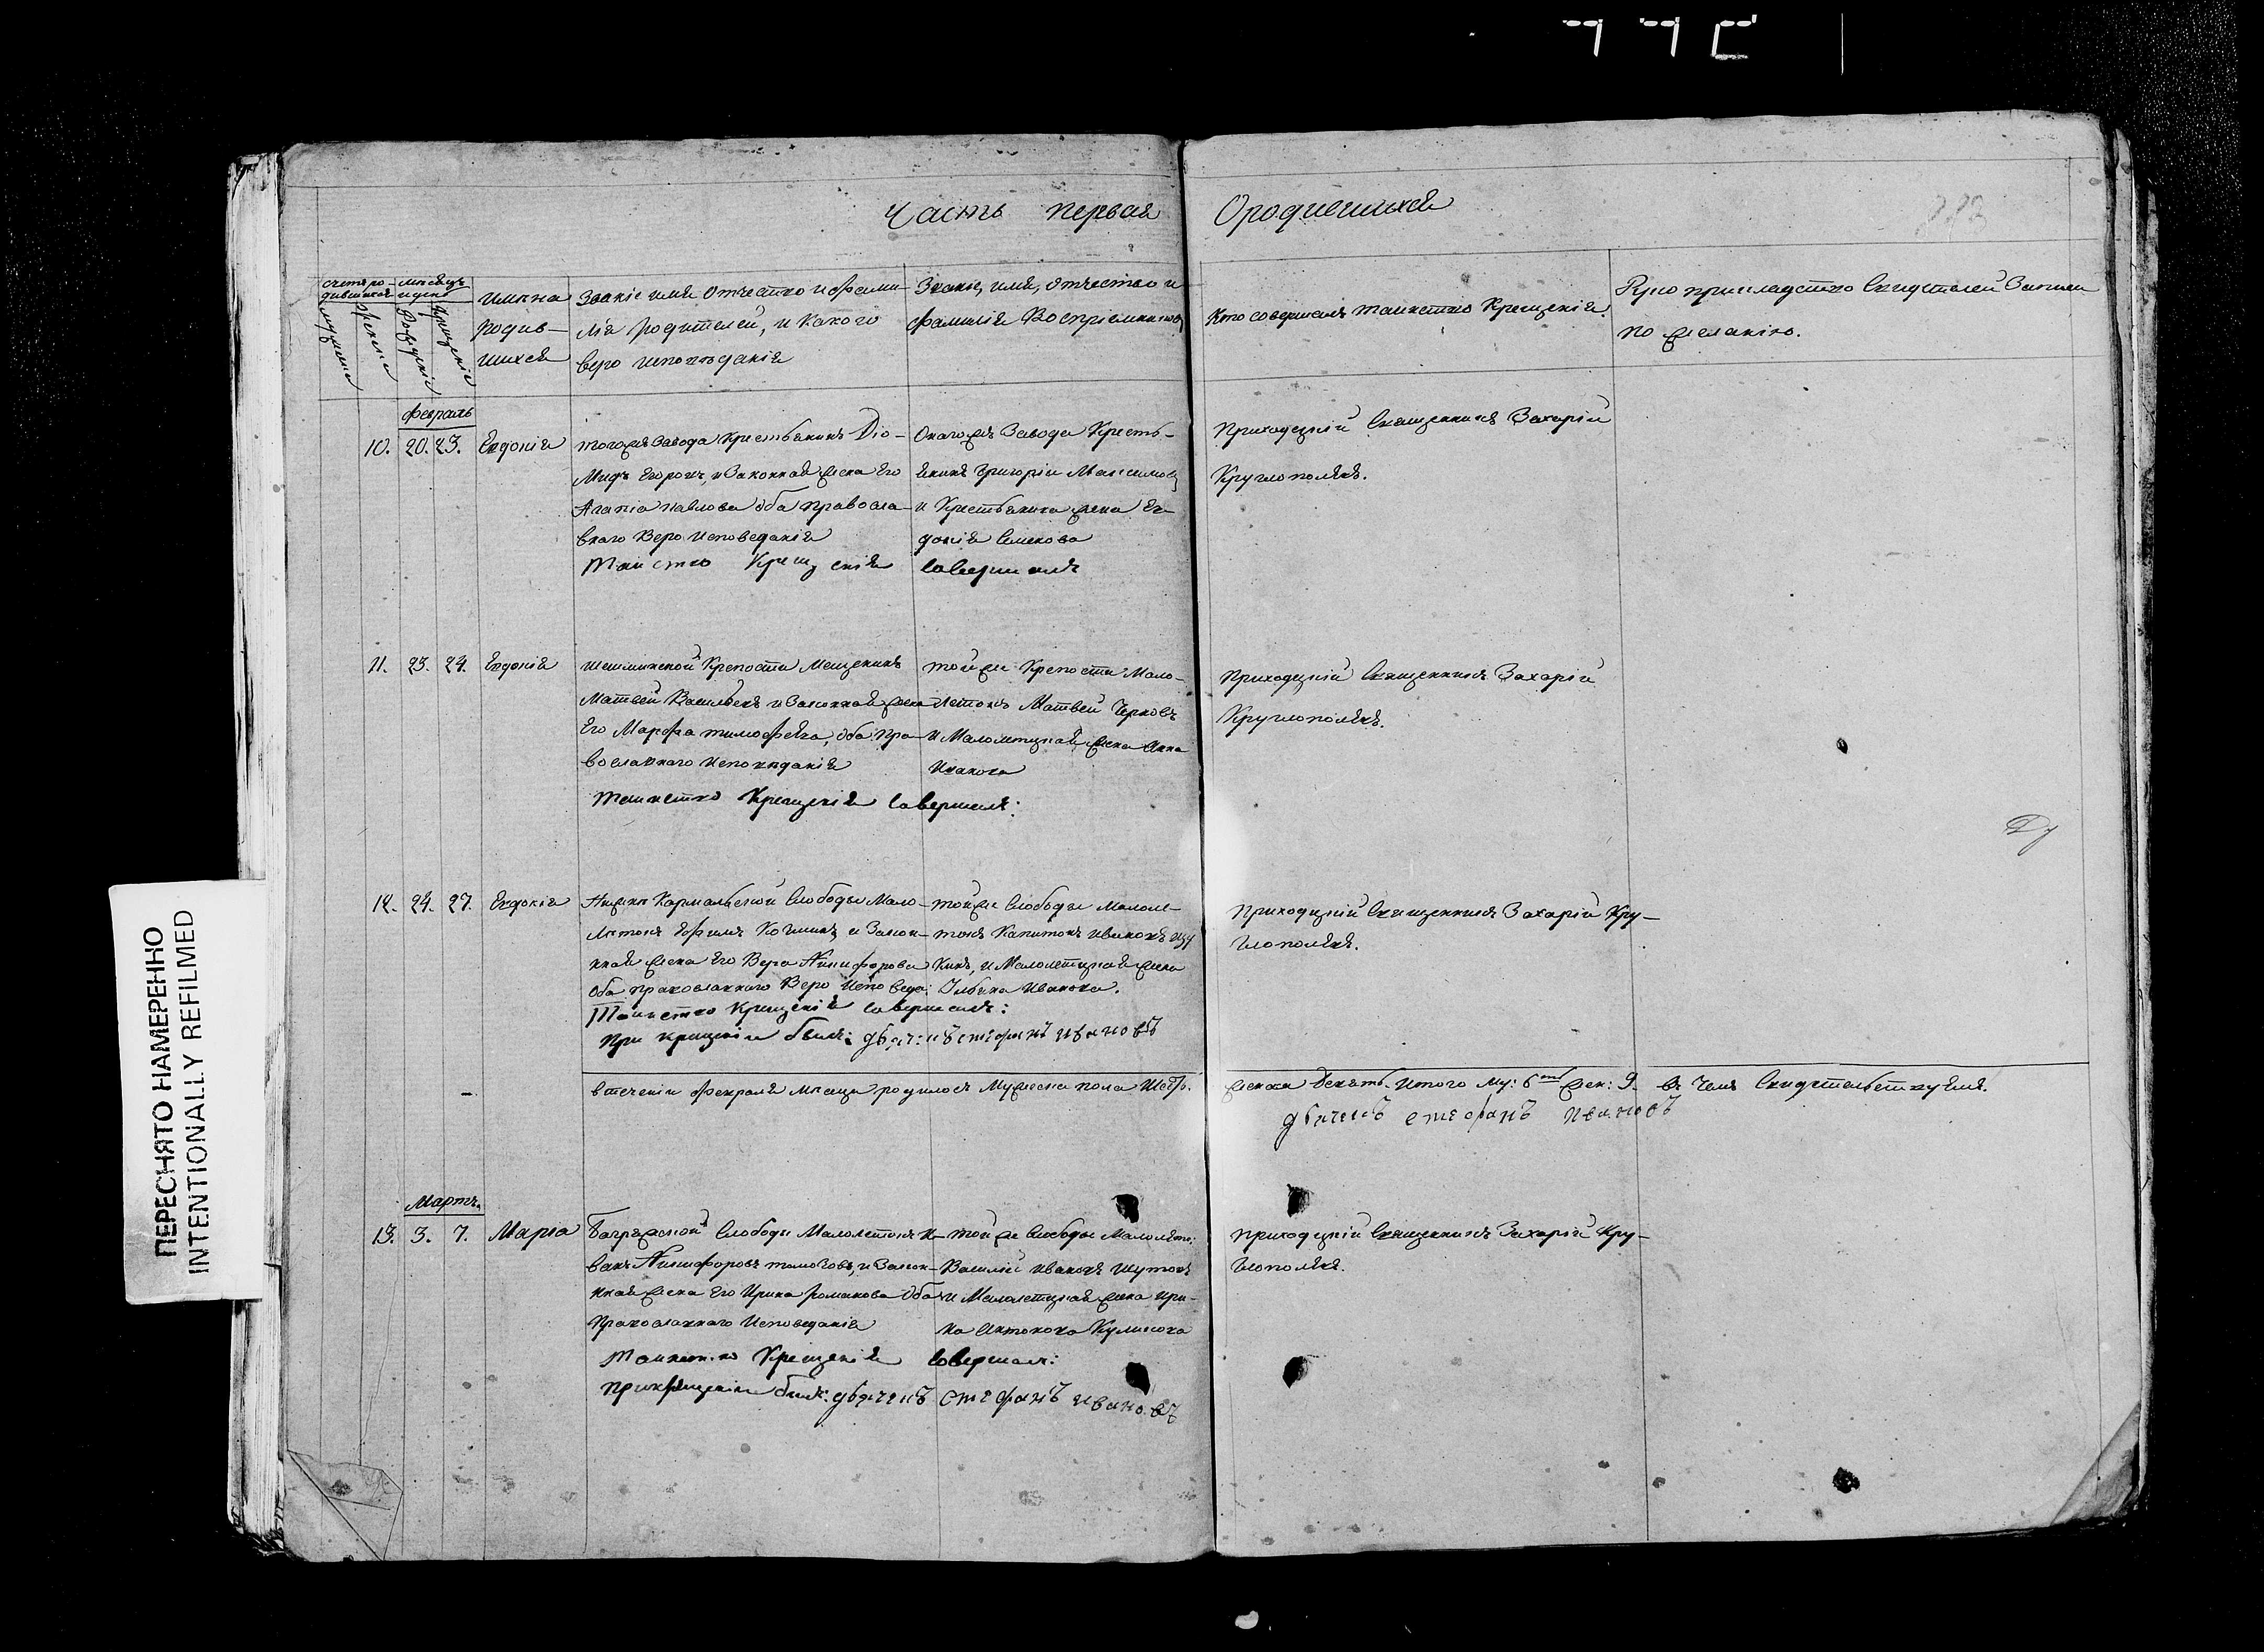 Часть первая
О родившихся
Счетъ ро-
дившихся
мужеска
женска
Месяцъ
и день
Рождения
Крещенія
Имена
родив-
шихся
Званіе имя Отчество и фами-
лія родителей, и Какого
веро исповѣданія
Званіе, имя, отчество и
фамилія Воспріемниковъ
Кто совершалъ таинство Крещенія.
Рукоприкладство Свидетелей Записи
по желанію.
Февраль
10. 20. 23. Евдокія
тогожъ завода Крестьянинъ Dio-
мидъ Егоровъ, и Законная жена Его
Агапіа павлова оба православ-
внаго Веро исповеданія
Таинство Крещенія Совершилъ
Онагожъ Завода Кресть-
янинъ Григоріи Максимовъ
и Крестьянина жена Ев-
докія Семенова
Приходскій Священникъ Захарій
Круглополевъ.
11. 23. 24. Евдокія
шешминской Крепости Мещенинъ
Матвей Васильевъ и Законная жена
Его Марфа тимофѣева, оба пра-
вославнаго исповѣданія
Таинство Крещенія Совершилъ:
той же Крепости Мало-
летокъ Матвей
и Малолетцкая жена Анна
Иванова
Приходскій Священникъ Захарій
Круглополевъ.
12. 24. 27. Евдокія
Кармальской Слободы Мало-
летокъ Ефимъ и Закон-
ная жена Его Вера Никифорова
Оба православнаго Веро Исповеда:
Таинство Крещенія Совершилъ:
при крещеніи былъ: дьячекъ стефанъ ивановъ
той же Слободы Малоле-
токъ Капитонъ Ивановъ
и Малолетцкая жена
Ульяна Иванова.
Приходскій Священникъ Захарій Кру-
глополевъ.
в теченіи февраля месяца родилось Мужеска пола Шесть.
женска Девять. Итого му: 6ть жен: 9. въ чемъ Свидетельствуемъ.
дьячекъ стефанъ ивановъ
Мартъ.
13. 3. 7. Марια
Багряжской Слободы Малолетокъ И-
ванъ Никифоровъ и Закон-
ная жена Его Ирина Романова Оба
Православнаго Исповеданія
Таинство Крещенія Совершилъ:
при крещеніи былъ: дьячекъ стефанъ ивановъ
той же Слободы Малолето:
Василій Ивановъ Шутовъ
и Малолетцкая жена Ири-
на Антонова
приходскій Священникъ Захарій Кру-
глополевъ.
ПЕРЕСНЯТО НАМЕРЕННО
INTENTIONALLY REFILMED